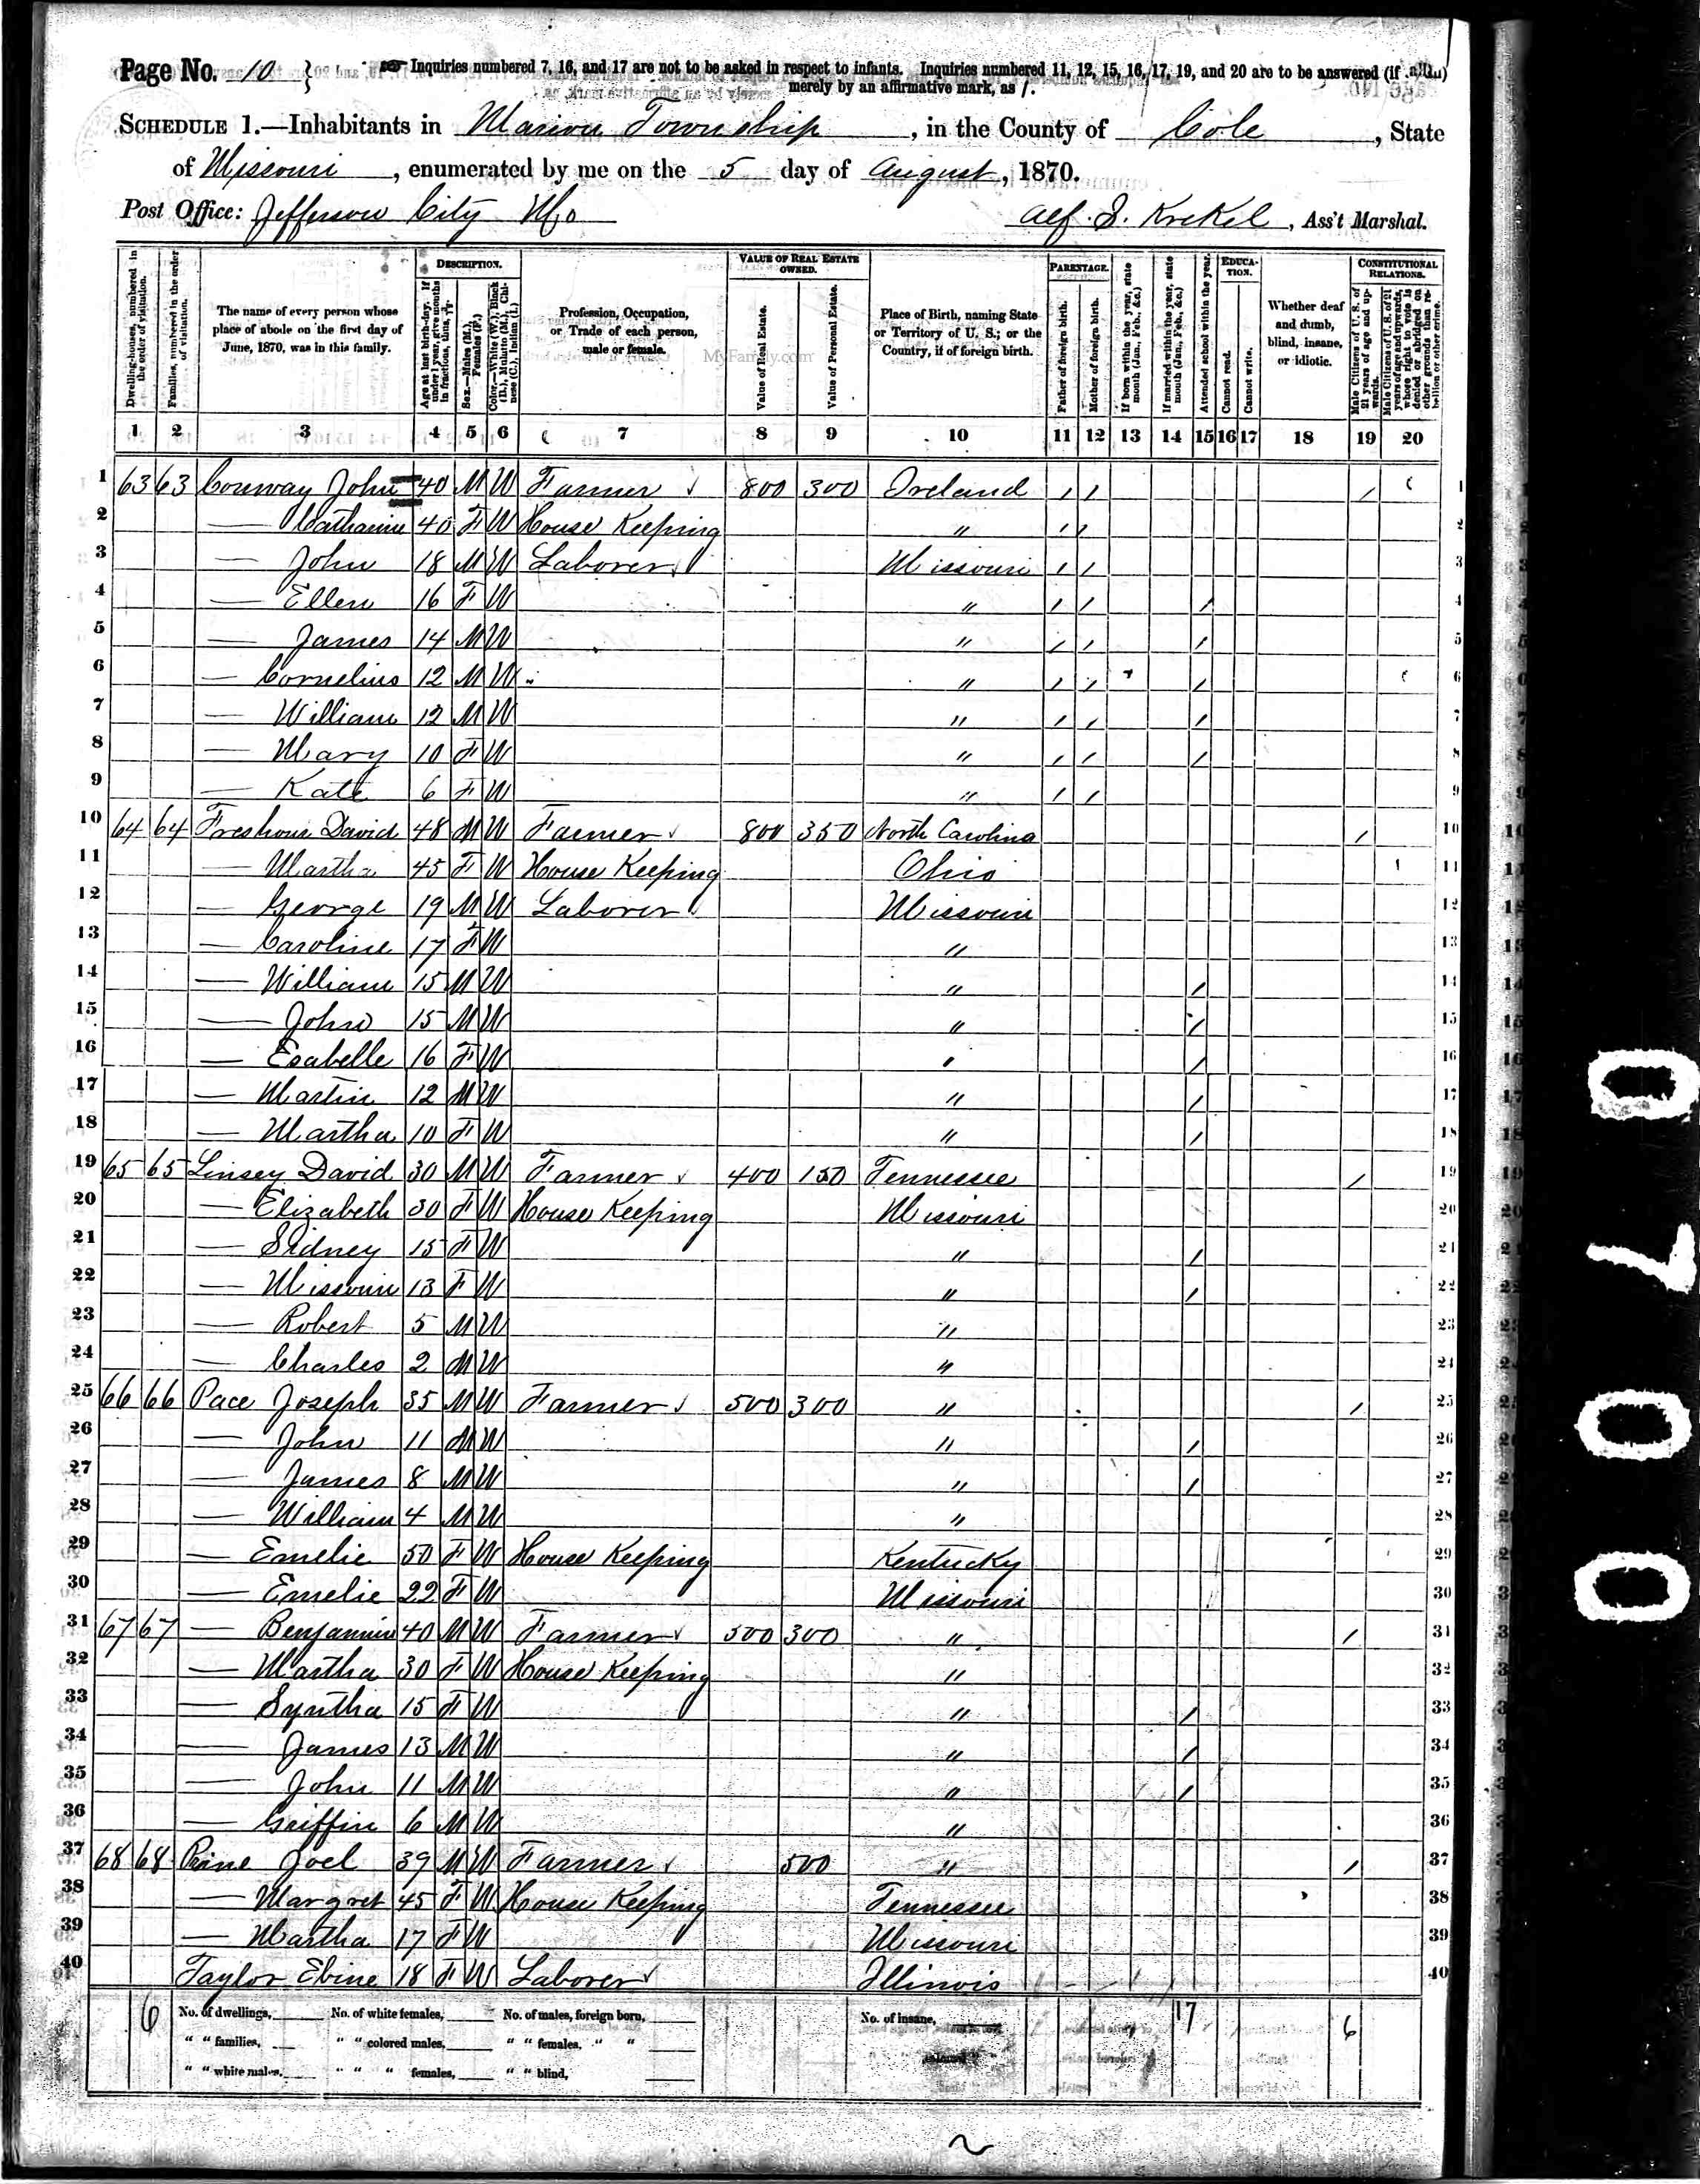 Page No. 10 } Inquiries numbered 7, 16, and 17 are not to be asked in respect to infants. Inquiries numbered 11, 12, 15, 16, 17, 19, and 20 are to be answered (if at all)
merely by an affirmative mark, as /.
SCHEDULE 1.—Inhabitants in Marion Township, in the County of Cole, State
of Missouri, enumerated by me on the 5 day of August, 1870.
Post Office: Jefferson City Mo Alf. Krekel, Ass't Marshal.
Dwelling-houses, numbered in the order of visitation.
Families, numbered in the order of visitation.
The name of every person whose place of abode on the first day of June, 1870, was in this family.
DESCRIPTION.
Age at last birth-day. If under 1 year, give months in fractions, thus,
Sex.—Males (M.), Females (F.)
Color.—White (W.), Black (B.), Mulatto (M.), Chinese (C.), Indian (I.)
Profession, Occupation, or Trade of each person, male or female.
MyFamily.com
VALUE OF REAL ESTATE OWNED.
Value of Real Estate.
Value of Personal Estate.
Place of Birth, naming State or Territory of U. S.; or the Country, if of foreign birth.
PARENTAGE.
Father of foreign birth.
Mother of foreign birth.
If born within the year, state month (Jan., Feb., &c.)
If married within the year, state month (Jan., Feb., &c.)
Attended school within the year.
EDUCATION.
Cannot read.
Cannot write.
Whether deaf and dumb, blind, insane, or idiotic.
CONSTITUTIONAL RELATIONS.
Male Citizens of U. S. of 21 years of age and upwards.
Male Citizens of U. S. of 21 years of age and upwards, whose right to vote is denied or abridged on other grounds than rebellion or other crime.
1 2 3 4 5 6 7 8 9 10 11 12 13 14 15 16 17 18 19 20
1 63 63 Conway John 40 M W Farmer ✓ 800 300 Ireland / / / 1
2 — Catharine 40 F W House Keeping " / / 2
3 — John 18 M W Laborer ✓ Missouri / / 3
4 — Ellen 16 F W " / / / 4
5 — James 14 M W " / / / 5
6 — Cornelius 12 M W " / / / 6
7 — William 12 M W " / / / 7
8 — Mary 10 F W " / / / 8
9 — Kate 6 F W " / / 9
10 64 64 Freshour David 48 M W Farmer ✓ 800 350 North Carolina / 10
11 — Martha 45 F W House Keeping Ohio 11
12 — George 19 M W Laborer ✓ Missouri 12
13 — Caroline 17 F W " 13
14 — William 15 M W " / 14
15 — John 15 M W " / 15
16 — Esabelle 16 F W " / 16
17 — Martin 12 M W " / 17
18 — Martha 10 F W " / 18
19 65 65 Linsey David 30 M W Farmer ✓ 400 150 Tennessee / 19
20 — Elizabeth 30 F W House Keeping Missouri 20
21 — Sidney 15 F W " / 21
22 — Missouri 13 F W " / 22
23 — Robert 5 M W " 23
24 — Charles 2 M W " 24
25 66 66 Pace Joseph 35 M W Farmer ✓ 500 300 " / 25
26 — John 11 M W " / 26
27 — James 8 M W " / 27
28 — William 4 M W " 28
29 — Emelie 50 F W House Keeping Kentucky 29
30 — Emelie 22 F W Missouri 30
31 67 67 — Benjamin 40 M W Farmer ✓ 500 300 " / 31
32 — Martha 30 F W House Keeping " 32
33 — Syntha 15 F W " / 33
34 — James 13 M W " / 34
35 — John 11 M W " / 35
36 — Griffin 6 M W " 36
37 68 68 Joel 39 M W Farmer ✓ 500 " / 37
38 — Margret 45 F W House Keeping Tennessee 38
39 — Martha 17 F W Missouri 39
40 Taylor 18 F W Laborer ✓ Illinois 40
6 No. of dwellings, No. of white females, No. of males, foreign born, No. of insane, 17 6
" " families, " " colored males, " " females, " "
" " white males, " " " females, " " blind,
00700